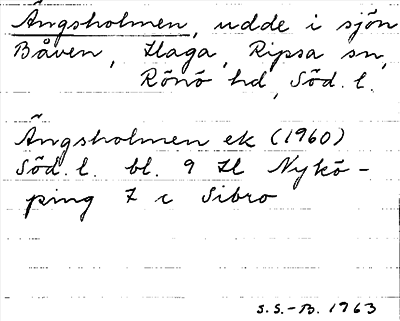 Ängsholmen, udde i sjön
Båven, Haga, Ripsa sn,
Rönö hd, Söd. l.
Ängsholmen ek (1960)
Söd. l. bl. 9 H Nykö-
ping 7 c Sibro
S.S.-B. 1963